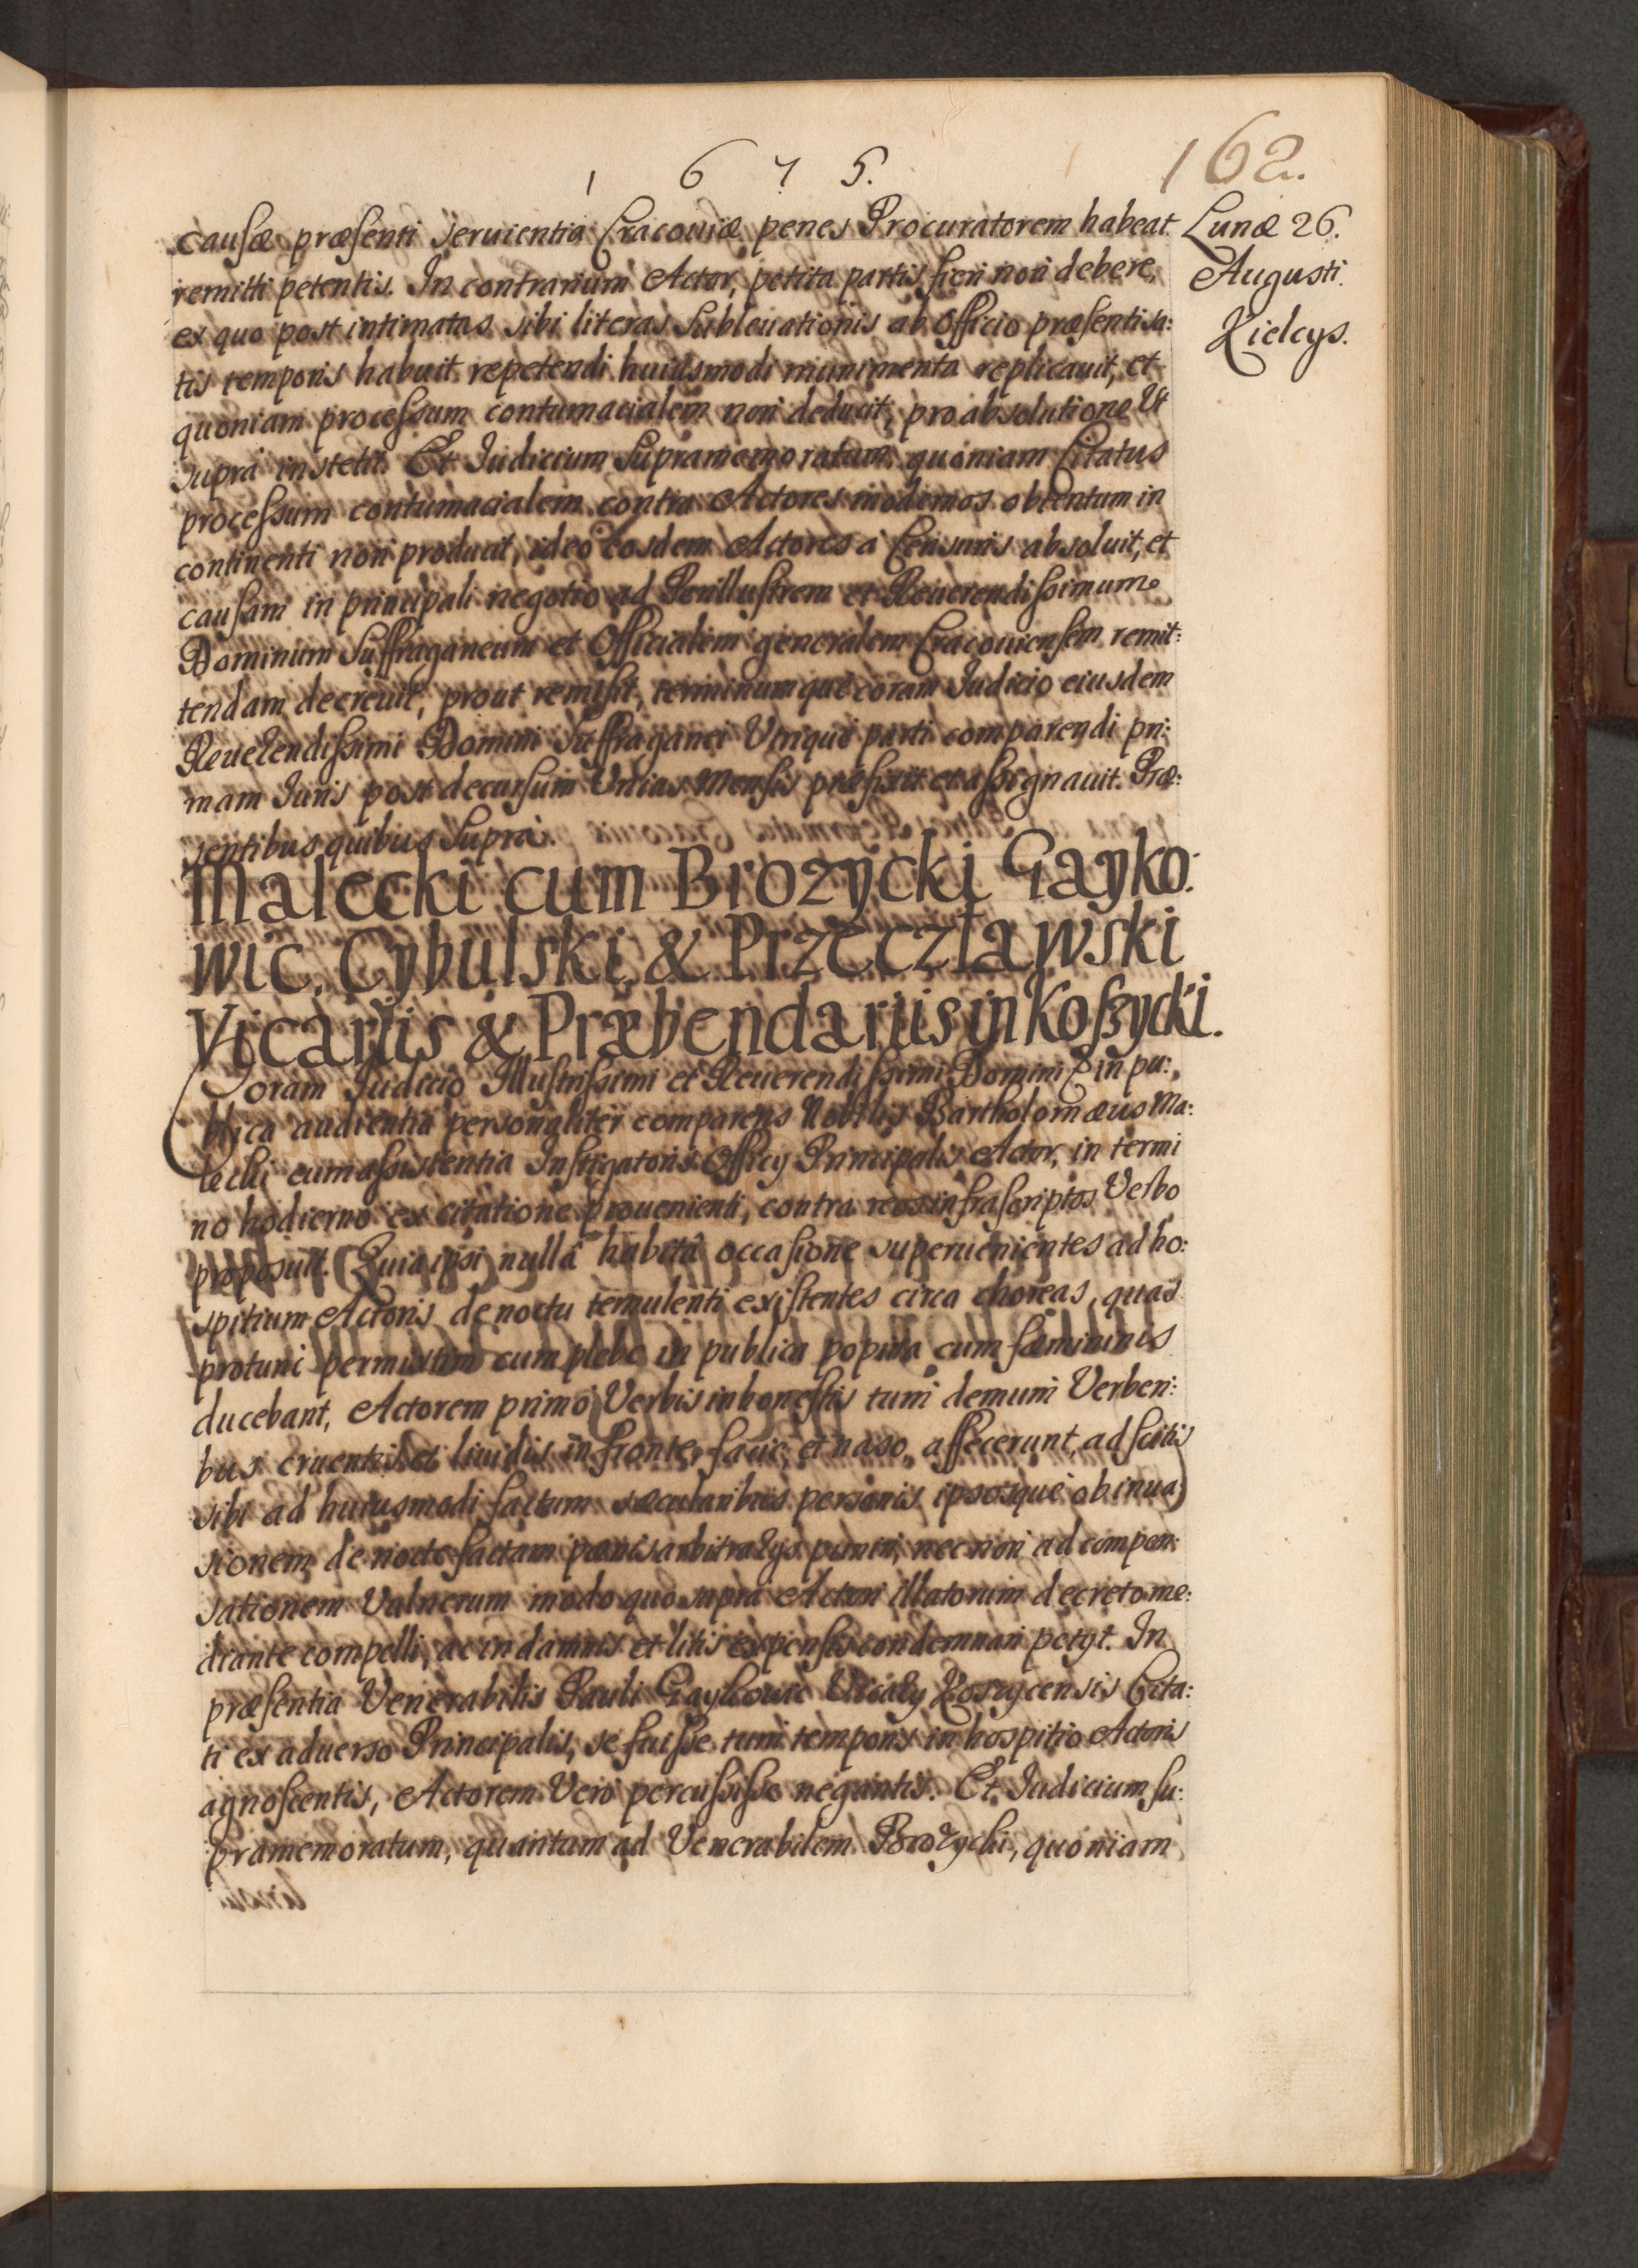 1 6 7 5.
162.
Lunæ 26.
Augusti
Kielcys.
causæ præsenti seruientia Cracouiæ penes Procuratorem habeat
remitti petentis. In contrarium Actor, petita partis fieri non debere,
ex quo post intimatas sibi literas subleuationis ab officio præsenti sa:
tis temporis habuit repetendi huiusmodi munimenta replicauit, et
quoniam processum contumacialem non deducit, pro absolutione Ut
supra institit. Et Iudicium supramemoratum, quoniam Citatus
processum contumacialem contra Actores modernos obtentum in
continenti non producit, ideo eosdem Actores a Censuris absoluit, et
causam in principali negotio ad Perillustrem et Reuerendissimum
Dominum Suffraganeum et Officialem generalem Cracouiensem remit:
tendam decreuit, prout remisit, terminumque coram Iudicio eiusdem
Reuerendissimi Domini Suffraganei Utrique parti comparendi pri:
mam Iuris post decursum Unius Mensis præfixit et assignauit. Præ:
sentibus quibus supra.
Malecki cum Brozycki Gayko:
wic, Cybulski, & Przeczławski
Vicariis & Præbendariis in Koszycki.
Coram Iudicio Illustrissimi et Reuerendissimi Domini E in pu:
blica audientia personaliter comparens Nobilis Bartholomæus Ma:
lecki cum assistentia Instigatoris Officy Principalis Actor, in termi
no hodierno ex citatione prouenienti, contra reos infrascriptos Verbo
proposuit. Quia ipsi nullâ habitâ occasione superuenientes ad ho:
spitium Actoris de noctu temulenti existentes circa choreas, quas
protuni permixtim cum plebe in publica popina cum fæmininis
ducebant, Actorem primo Verbis inhonestis tum demum Verberi:
bus cruentis et liuidis in fronte, facie, et naso, affecerunt, adscitis
sibi ad huiusmodi factum sæcularibus personis ipsosque ob inua
sionem de nocte factam pœnis arbitralys puniri, nec non ad compen:
sationem Vulnerum modo quo supra Actori illatorum decreto me:
diante compelli, ac in damnis et litis expensis condemnari petyt. In
præsentia Venerabilis Pauli Gaykowic Vicary Koszycensis Cita:
ti ex aduerso Principalis, se fuisse tum temporis in hospitio Actoris
agnoscentis, Actorem Vero percussisse negantis. Et Iudicium su:
pramemoratum, quantum ad Venerabilem Brozycki, quoniam